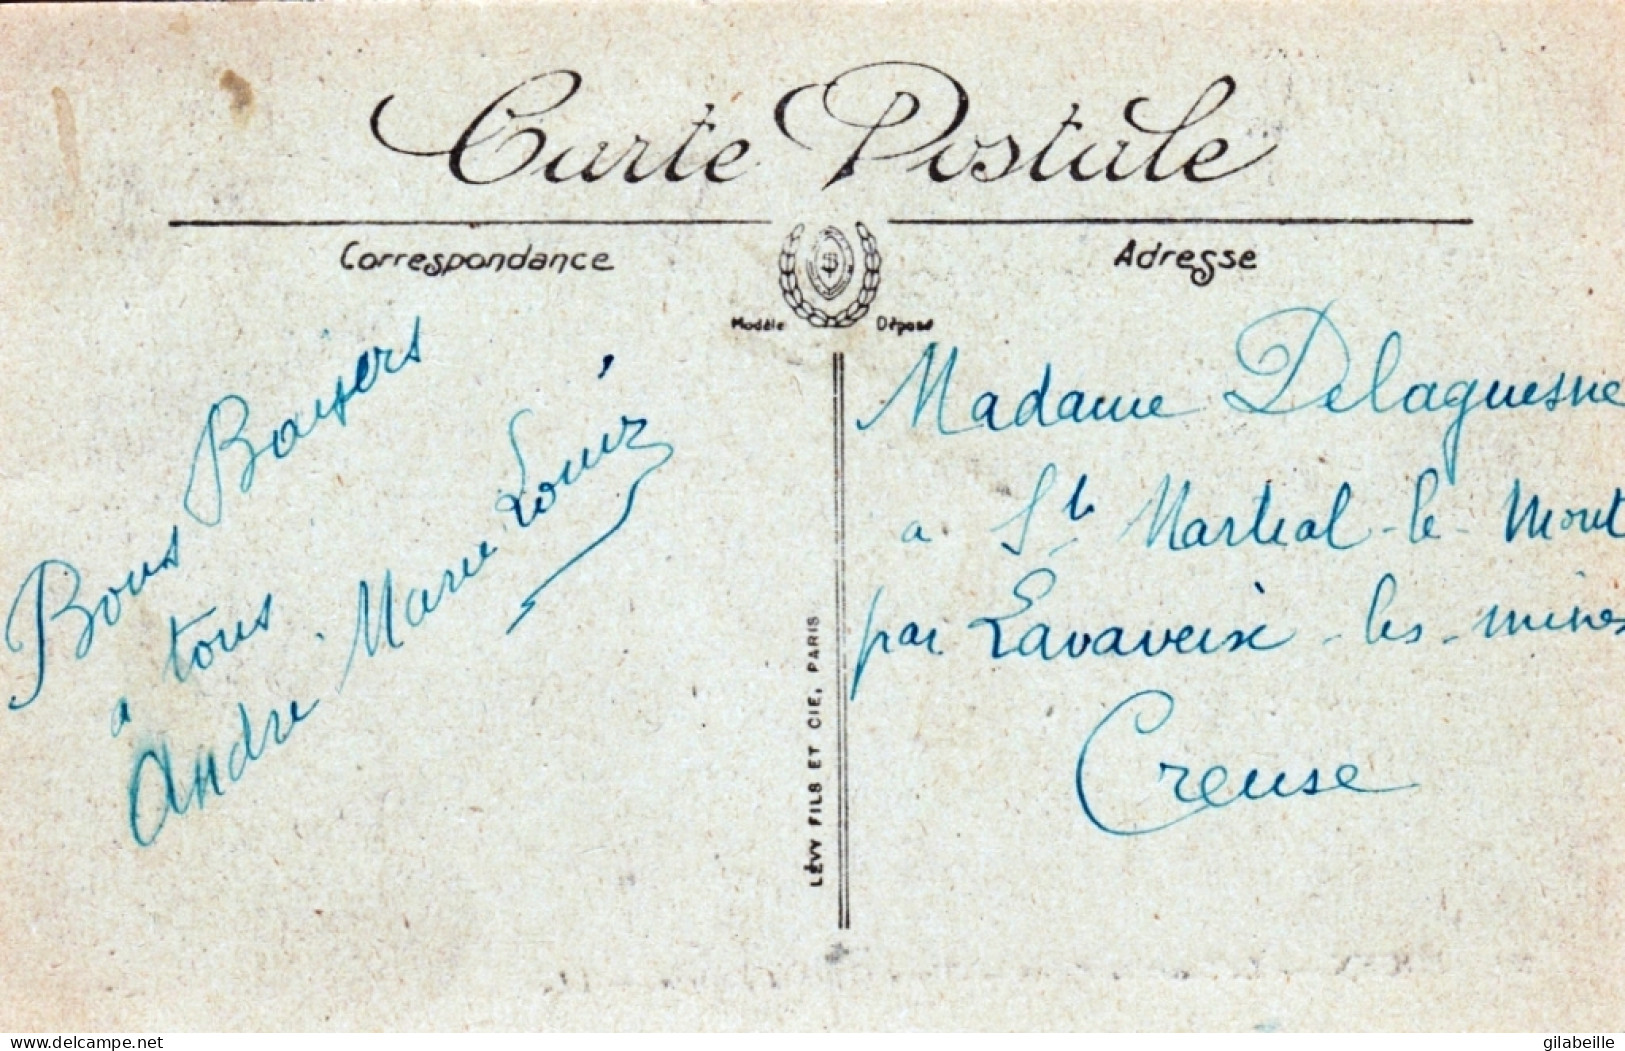 Carte Postale
Correspondance
Adresse
Modèle Déposé
Bons Baisers
à tous
André Marie Louise
LÉVY FILS ET CIE, PARIS
Madame Delaguesne
a St Martial-le-Mont
par Lavaveix-les-mines
Creuse
delcampe.net
gilabeille